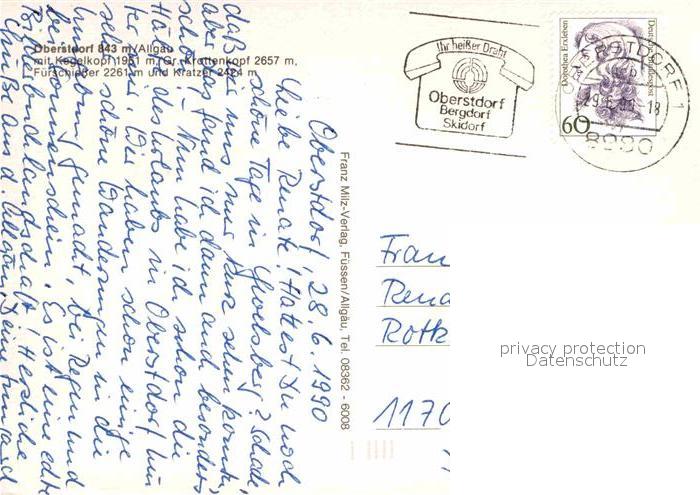 Oberstdorf 843 m/Allgäu
mit Kegelkopf 1951 m, Gr. Krottenkopf 2657 m,
Fürschießer 2261 m und Kratzer 2424 m
Oberstdorf 28.6.1990
Liebe Renate! Hattest Du noch
schöne Tage in ? Schade,
daß wir uns nur kurz sehen konnten,
aber das fand ich dann auch besonders
schön! Nun habe ich schon die
Hälfte des Urlaubs in Oberstdorf hin
ter mir. Wir haben schon einige
schöne Wanderungen in die
Umgebung gemacht, bei Regen und
bei Sonnenschein. Es ist eine echte
Bilderbuchlandschaft! Herzliche
Grüße aus d. Allgäu, Deine
Franz Milz-Verlag, Füssen/Allgäu, Tel. 08362 - 6008
Ihr heißer Draht
Oberstdorf
Bergdorf
Skidorf
Dorothea Erxleben
Deutsche Bundespost
60
OBERSTDORF 1
29.6.90-18
8980
Frau
Rena
Rothk
1170
privacy protection
Datenschutz